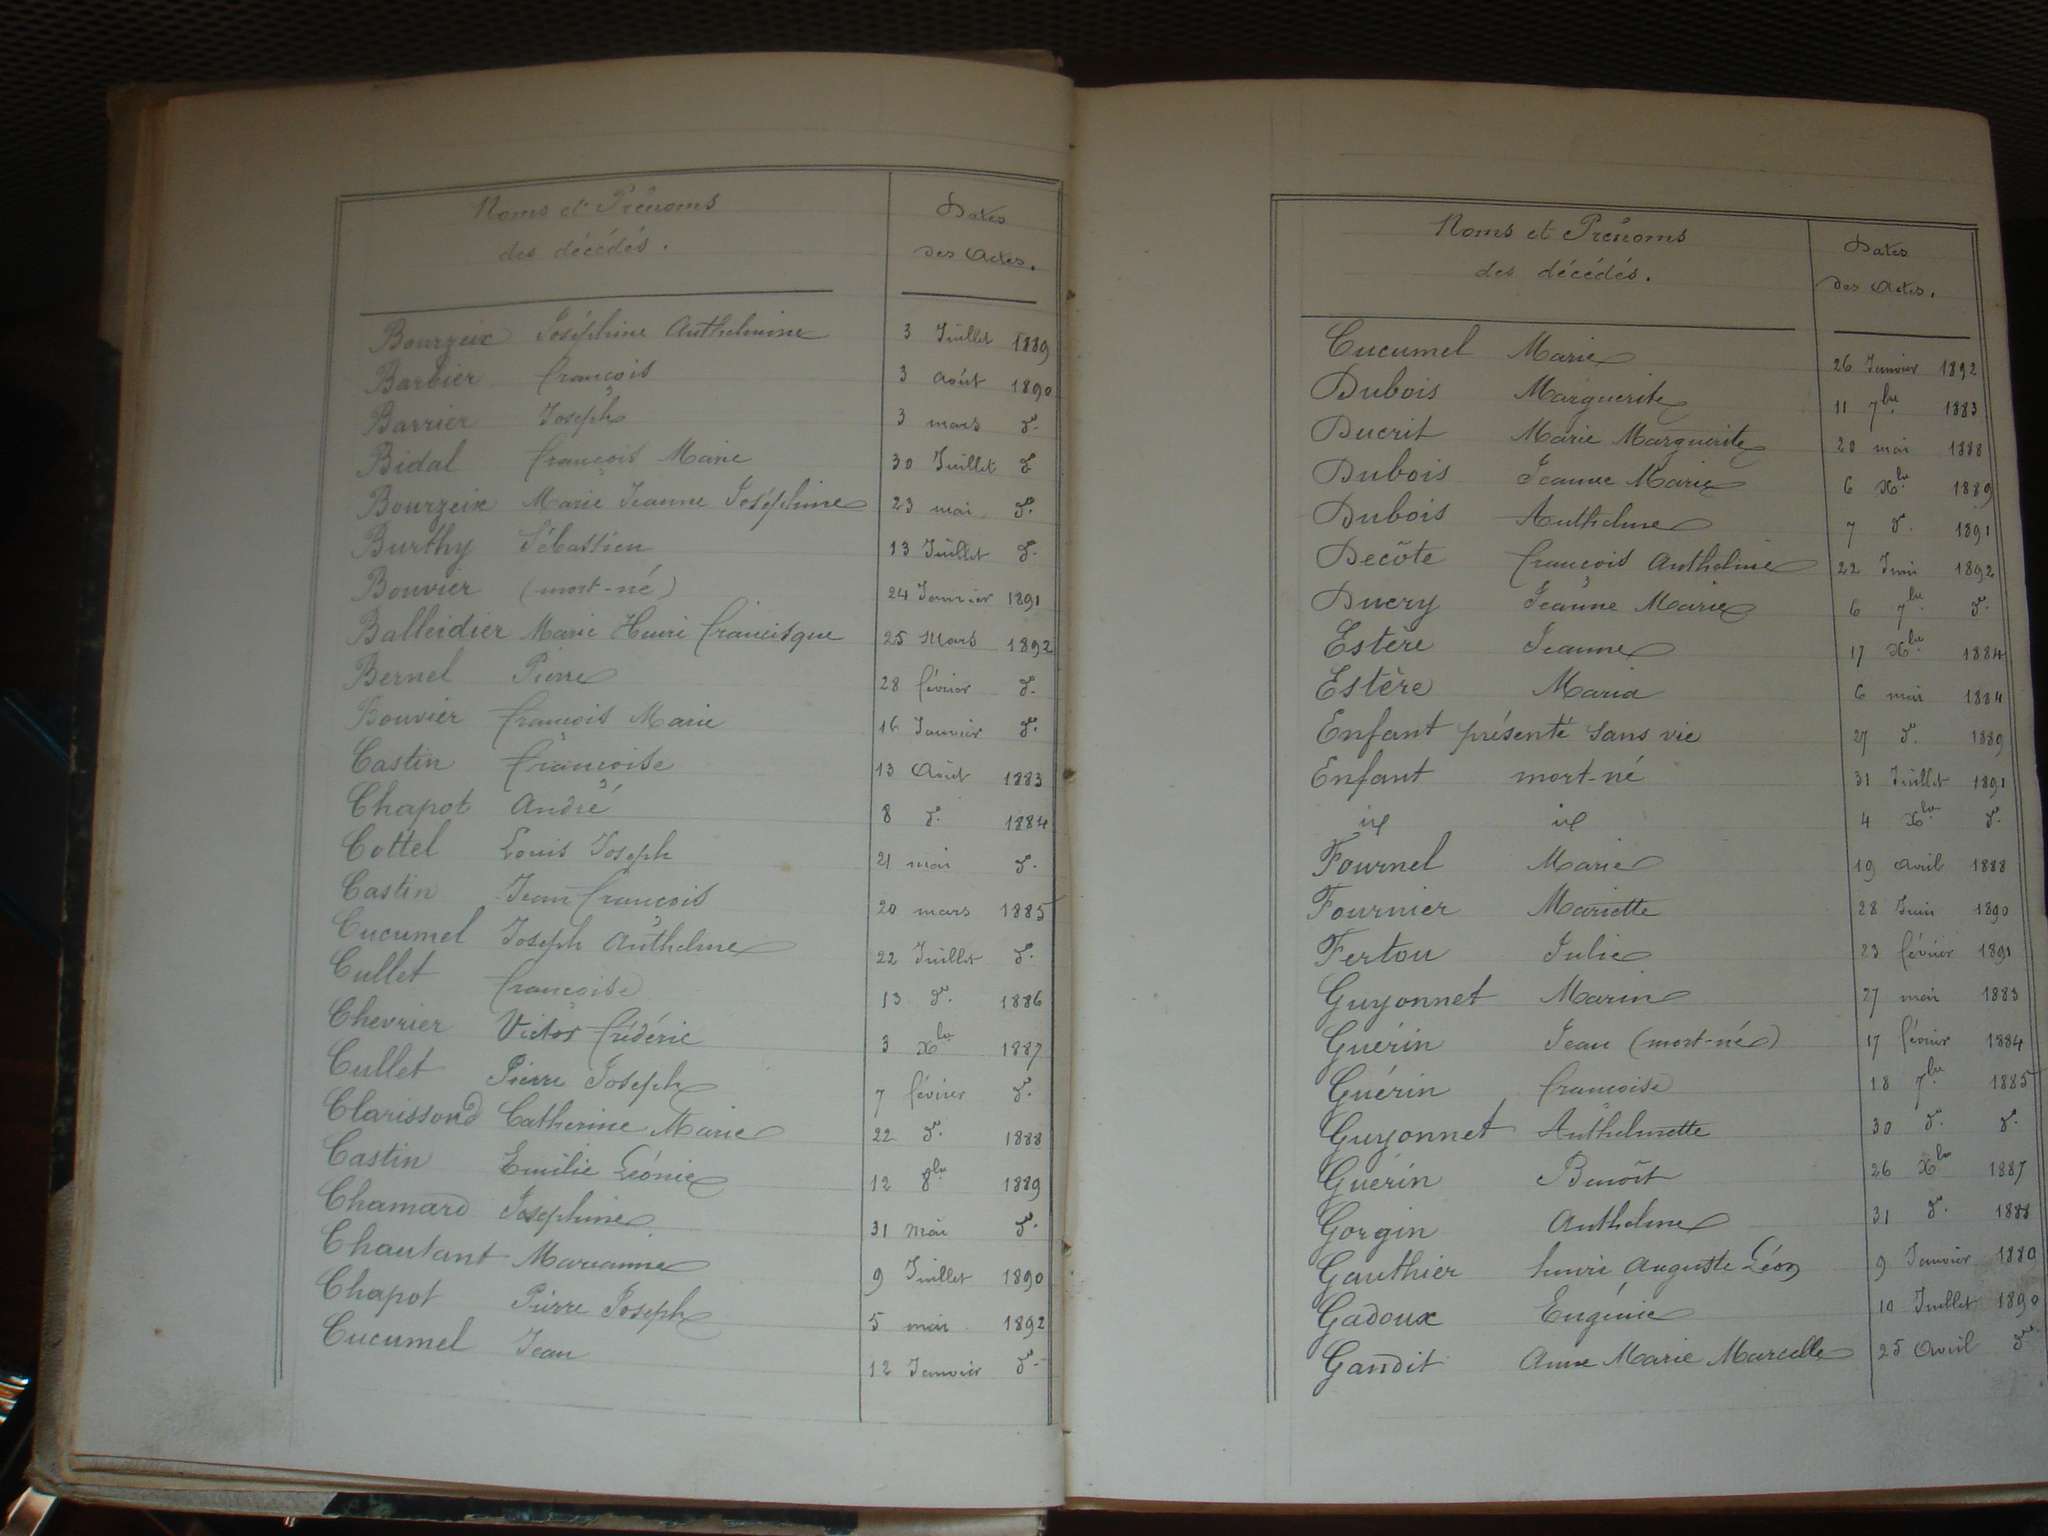 Noms et Prénoms
des décédés.
Dates
des Actes.
Bourgeix Joséphine Anthelmine 3 Juillet 1889
Barbier françois 3 août 1890
Barrier Joseph 3 mars do.
Bidal françois Marie 30 Juillet do
Bourgeix Marie Jeanne Joséphine 23 mai do.
Burthy Sébastien 13 Juillet do.
Bouvier (mort-né) 24 Janvier 1891
Balleidier Marie Henri francisque 25 Mars 1892
Bernel Pierre 28 février do.
Bouvier françois Marie 16 Janvier do.
Castin françoise 13 Août 1883
Chapot André 8 do. 1884
Cottel Louis Joseph 21 mai do.
Castin Jean françois 20 mars 1885
Cucumel Joseph Anthelme 22 Juillet do.
Cullet françoise 13 do. 1886
Chevrier Victor frédéric 3 Xbre 1887
Cullet Pierre Joseph 7 février do.
Clarissond Catherine Marie 22 do. 1888
Castin Emilie Léonie 12 8bre 1889
Chamard Joséphine 31 mai do.
Chautant Marianne 9 Juillet 1890
Chapot Pierre Joseph 5 mai 1892
Cucumel Jean 12 Janvier do
Noms et Prénoms
des décédés.
Dates
des Actes.
Cucumel Marie 26 Janvier 1892
Dubois Marguerite 11 7bre 1883
Ducrit Marie Marguerite 20 mai 1888
Dubois Jeanne Marie 6 Xbre 1889
Dubois Anthelme 7 do. 1891
Decôte françois Anthelme 22 Juin 1892
Ducry Jeanne Marie 6 7bre do.
Estère Jeanne 17 Xbre 1884
Estère Maria 6 mai 1884
Enfant présenté sans vie 27 do. 1889
Enfant mort-né 31 Juillet 1891
id id 4 Xbre do.
Fournel Marie 19 avril 1888
Fournier Mariette 28 Juin 1890
Fertou Julie 23 février 1891
Guyonnet Marin 27 mai 1883
Guérin Jean (mort-né) 17 février 1884
Guérin françoise 18 7bre 1885
Guyonnet Anthelmette 30 do. do.
Guérin Benoît 26 Xbre 1887
Gorgin Anthelme 31 do. 1888
Gauthier henri Auguste Léon 9 Janvier 1880
Gadoux Eugénie 10 Juillet 1890
Gandit Anne Marie Marcelle 25 Avril do